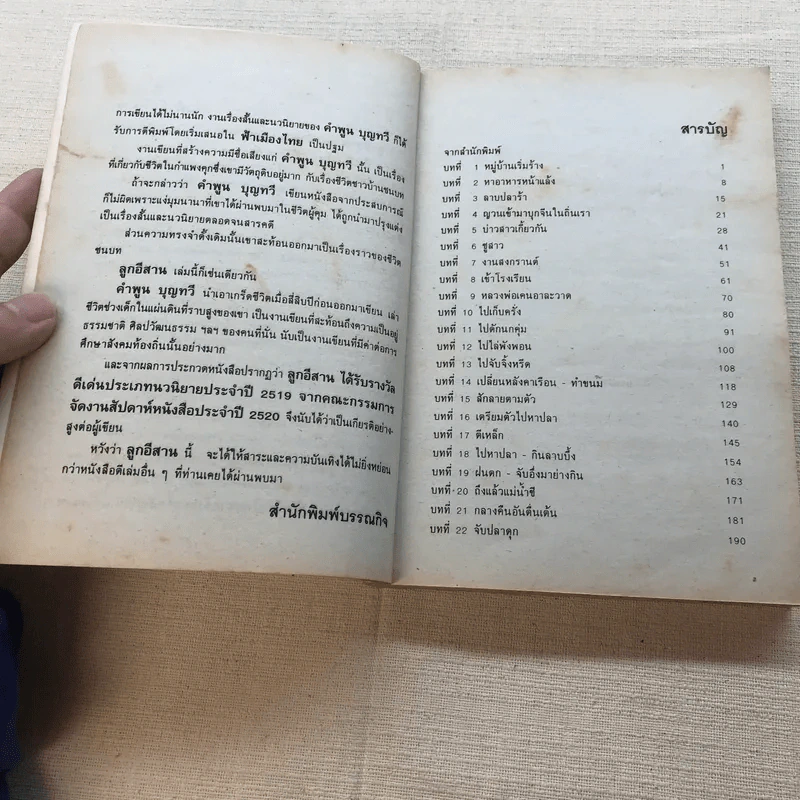 การเขียนได้ไม่นานนัก งานเรื่องสั้นและนวนิยายของ คำพูน บุญทวี ก็ได้
รับการตีพิมพ์โดยเริ่มเสนอใน ฟ้าเมืองไทย เป็นปฐม
งานเขียนที่สร้างความมีชื่อเสียงแก่ คำพูน บุญทวี นั้น เป็นเรื่อง
ที่เกี่ยวกับชีวิตในกำแพงคุกซึ่งเขามีวัตถุดิบอยู่มาก กับเรื่องชีวิตชาวบ้านชนบท
ถ้าจะกล่าวว่า คำพูน บุญทวี เขียนหนังสือจากประสบการณ์
ก็ไม่ผิดเพราะแง่มุมนานาที่เขาได้ผ่านพบมาในชีวิตผู้คุม ได้ถูกนำมาปรุงแต่ง
เป็นเรื่องสั้นและนวนิยายตลอดจนสารคดี
ส่วนความทรงจำดั้งเดิมนั้นเขาสะท้อนออกมาเป็นเรื่องราวของชีวิต
ชนบท
ลูกอีสาน เล่มนี้ก็เช่นเดียวกัน
คำพูน บุญทวี นำเอาเกร็ดชีวิตเมื่อสี่สิบปีก่อนออกมาเขียน เล่า
ชีวิตช่วงเด็กในแผ่นดินที่ราบสูงของเขา เป็นงานเขียนที่สะท้อนถึงความเป็นอยู่
ธรรมชาติ ศิลปวัฒนธรรม ฯลฯ ของคนที่นั่น นับเป็นงานเขียนที่มีค่าต่อการ
ศึกษาสังคมท้องถิ่นนั้นอย่างมาก
และจากผลการประกวดหนังสือปรากฏว่า ลูกอีสาน ได้รับรางวัล
ดีเด่นประเภทนวนิยายประจำปี 2519 จากคณะกรรมการ
จัดงานสัปดาห์หนังสือประจำปี 2520 จึงนับได้ว่าเป็นเกียรติอย่าง-
สูงต่อผู้เขียน
หวังว่า ลูกอีสาน นี้ จะได้ให้สาระและความบันเทิงได้ไม่ยิ่งหย่อน
กว่าหนังสือดีเล่มอื่น ๆ ที่ท่านเคยได้ผ่านพบมา
สำนักพิมพ์บรรณกิจ
สารบัญ
จากสำนักพิมพ์
บทที่ 1 หมู่บ้านเริ่มร้าง 1
บทที่ 2 หาอาหารหน้าแล้ง 8
บทที่ 3 ลาบปลาร้า 15
บทที่ 4 ญวนเข้ามาบุกจีนในถิ่นเรา 21
บทที่ 5 บ่าวสาวเกี้ยวกัน 28
บทที่ 6 ชู้สาว 41
บทที่ 7 งานสงกรานต์ 51
บทที่ 8 เข้าโรงเรียน 61
บทที่ 9 หลวงพ่อเคนอาละวาด 70
บทที่ 10 ไปเก็บครั่ง 80
บทที่ 11 ไปดักนกคุ่ม 91
บทที่ 12 ไปไล่พังพอน 100
บทที่ 13 ไปจับจิ้งหรีด 108
บทที่ 14 เปลี่ยนหลังคาเรือน - ทำขนม 118
บทที่ 15 สักลายตามตัว 129
บทที่ 16 เตรียมตัวไปหาปลา 140
บทที่ 17 ตีเหล็ก 145
บทที่ 18 ไปหาปลา - กินลาบบึ้ง 154
บทที่ 19 ฝนตก - จับอึ่งมาย่างกิน 163
บทที่ 20 ถึงแล้วแม่น้ำชี 171
บทที่ 21 กลางคืนอันตื่นเต้น 181
บทที่ 22 จับปลาดุก 190